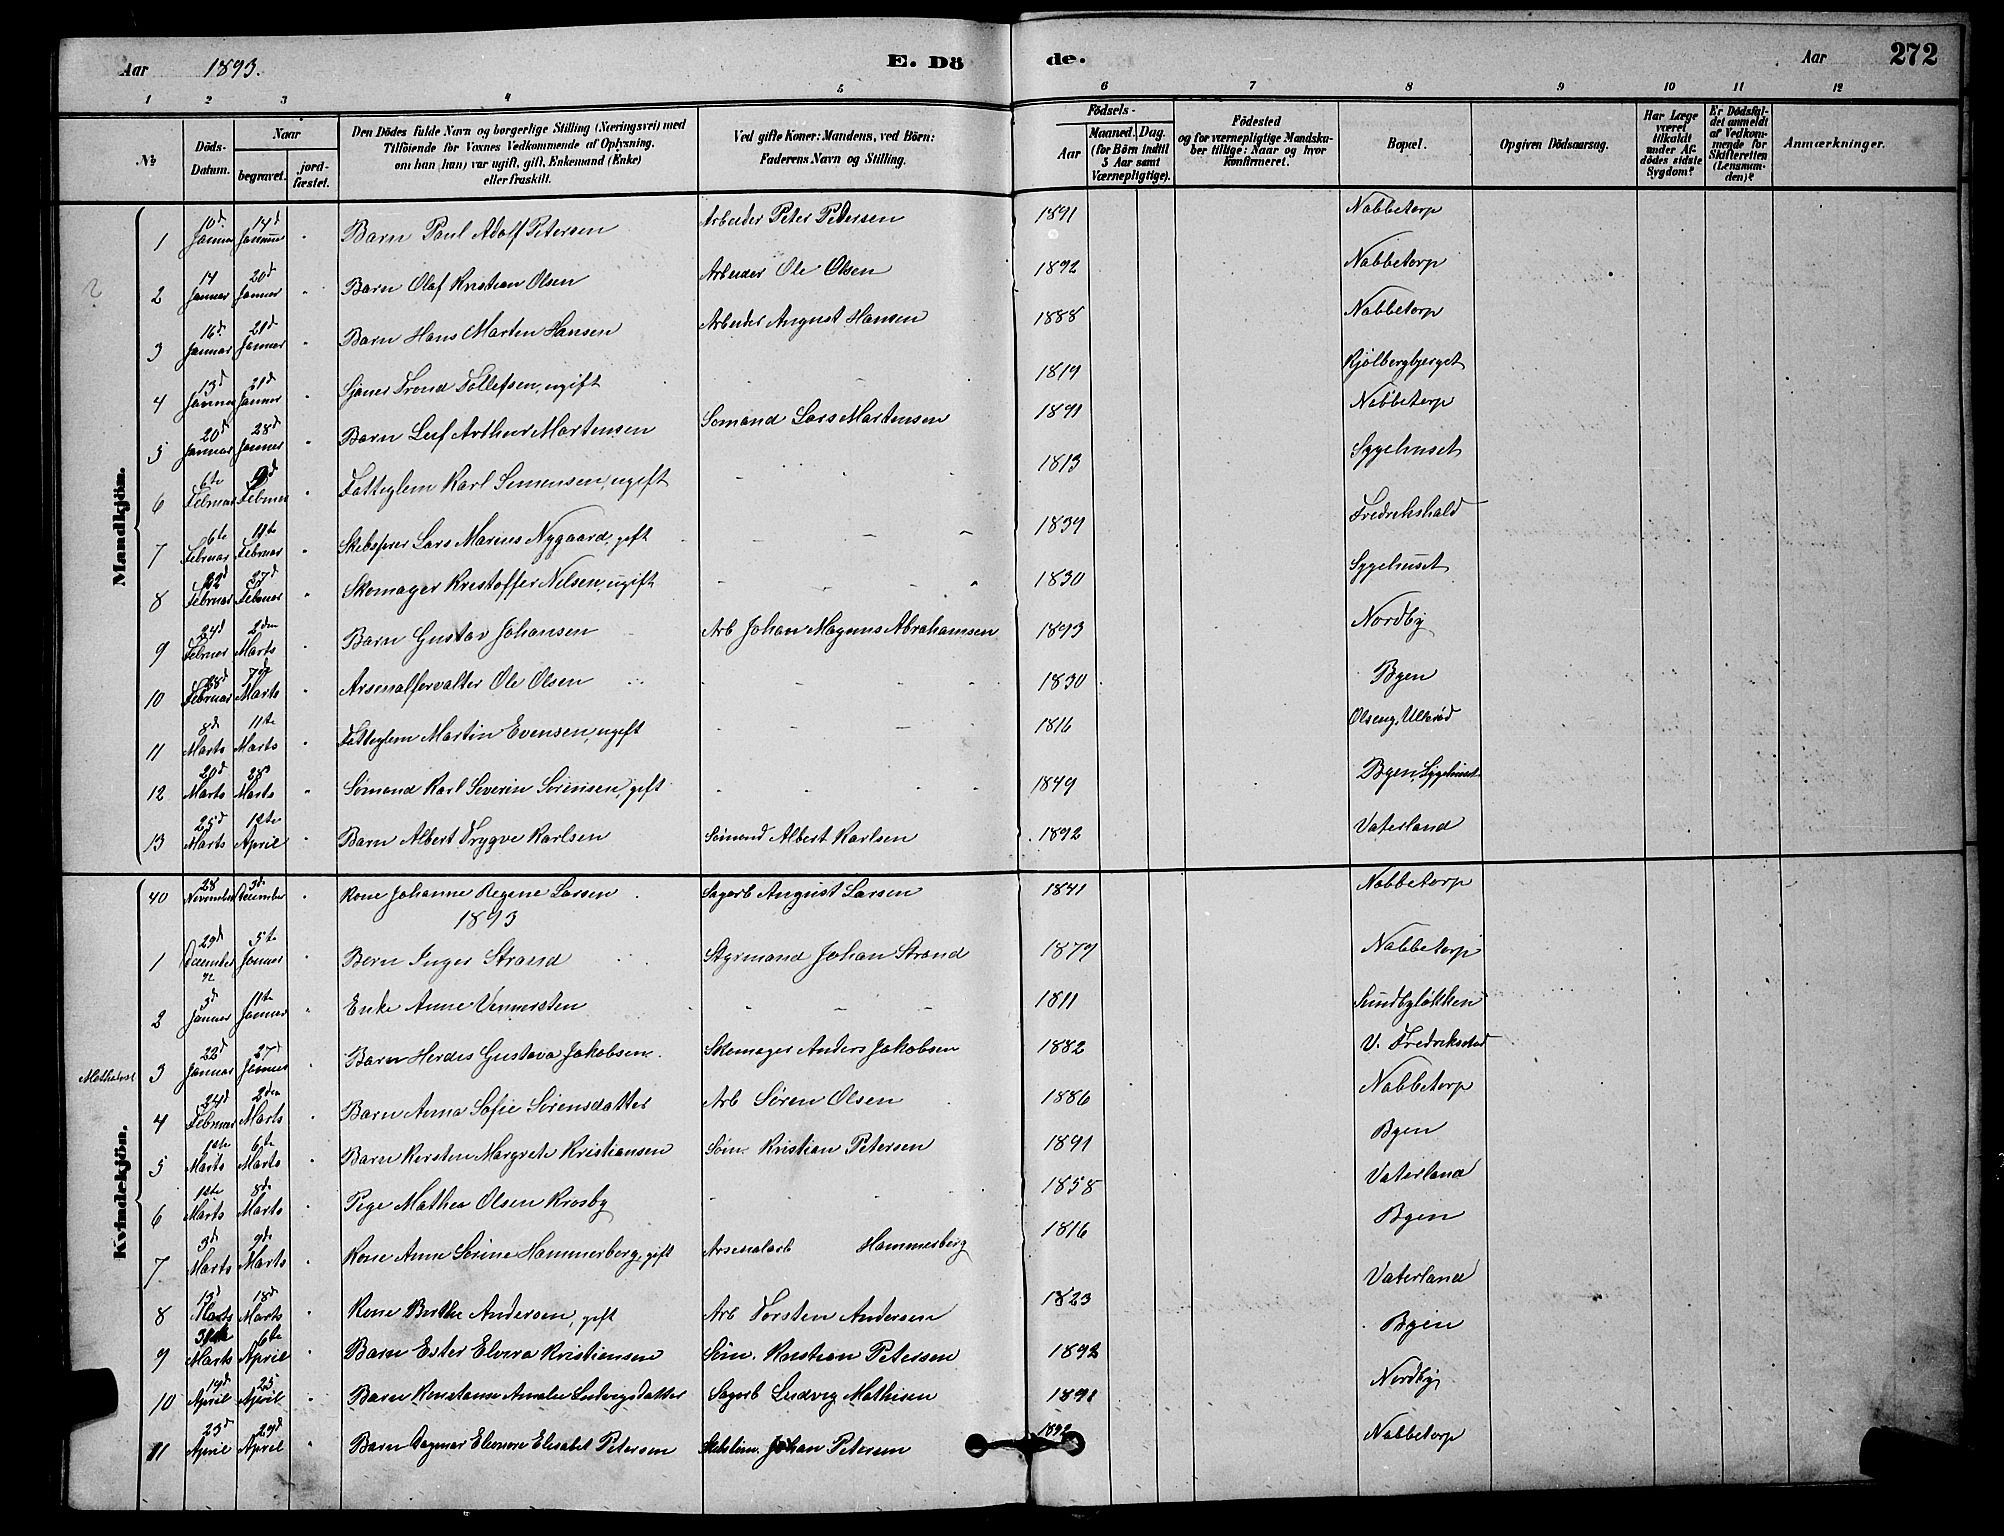 Aar 1893. E. Dö de. Aar 272
1 2 3 4 5 6 7 8 9 10 11 12
№ Döds-Datum. Naar begravet. jordfæstet. Den Dödes fulde Navn og borgerlige Stilling (Næringsvei) med Tilföiende for Voxnes Vedkommende af Oplysning, om han (hun) var ugift, gift, Enkemand (Enke) eller fraskilt. Ved gifte Koner: Mandens, ved Börn: Faderens Navn og Stilling. Födsels- Aar Maaned. Dag. (for Börn indtil 5 Aar samt Værnepligtige). Födested og for værnepligtige Mandskaber tillige: Naar og hvor konfirmeret. Bopæl. Opgiven Dödsaarsag. Har Læge været tilkaldt under Afdödes sidste Sygdom? Er Dödsfaldet anmeldt af Vedkommende for Skifteretten (Lensmanden)? Anmærkninger.
Mandkjön.
1 10d Januar 14d Januar " Barn Paul Adolf Petersen Arbeider Peter Pedersen 1891 Nabbetorp
2 14 Januar 20d Januar " Barn Olaf Kristian Olsen Arbeider Ole Olsen 1892 Nabbetorp
3 16d Januar 21d Januar " Barn Hans Marten Hansen Arbeider August Hansen 1888 Nabbetorp
4 13d Januar 21d Januar " Trond Tollefsen, ugift 1819 Kjølbergbjerget
5 20d Januar 28d Januar " Barn Leif Arthur Martensen Sømand Lars Martensen 1891 Nabbetorp
6 6te Februar 9d Februar " Fatteglem Karl Simensen, ugift 1813 Sygehuset
7 6te Februar 11te Februar " Lars Marius Nygaard, gift 1839 Fredrikshald
8 22d Februar 27d Februar " Skomager Kristoffer Nilsen, ugift 1830 Sygehuset
9 24d Februar 2den Marts Barn Gustav Johansen Arb Johan Magnus Abrahamsen 1893 Nordby
10 28d Februar 7d Marts " Arsenalforvalter Ole Olsen 1830 Byen
11 8d Marts 11te Marts " Fatteglem Martin Evensen, ugift 1816 Olseng, Ullerød
12 20d Marts 28d Marts " Sømand Karl Severin Sørensen, gift 1849 Byen, Sygehuset
13 25d Marts 12te April " Barn Albert Trygve Karlsen Sømand Albert Karlsen 1892 Vaterland
Kvindekjön.
40 28 November 3d December " Kone Johanne Regine Larsen Sagarb August Larsen 1841 Nabbetorp
1893
1 29d December 92 5te Januar " Barn Inger Strand Styrmand Johan Strand 1879 Nabbetorp
2 3d Januar 11te Januar " Enke Anne Vennersten 1811 Sundbyløkken
3 22d Januar 27d Januar " Barn Herdis Gustava Jakobsen Skomager Anders Jakobsen 1882 V. Fredrikstad
4 24d Februar 2den Marts " Barn Anna Sofie Sørensdatter Arb Søren Olsen 1886 Nabbetorp
5 1ste Marts 6te Marts " Barn Kersten Margrete Kristiansen Søm. Kristian Petersen 1891 Byen
6 1ste Marts 8d Marts " Pige Mathea Olsen Krosby 1858 Vaterland
7 3d Marts 9de Marts " Kone Anne Sørine Hammerberg, gift Arsenalarb Hammerberg 1816 Byen
8 13d Marts 18d Marts " Kone Berthe Andersen, gift Arb Torsten Andersen 1823 Vaterland
9 31te Marts 6te April " Barn Ester Elvira Kristiansen Søm. Kristian Petersen 1892 Byen
10 19d April 25 April " Barn Konstanse Amalie Ludvigsdatter Sagarb Ludvig Mathisen 1891 Nordby
11 23d April 29d April " Barn Dagmar Eleonore Elisabet Petersen Johan Petersen 1892 Nabbetorp